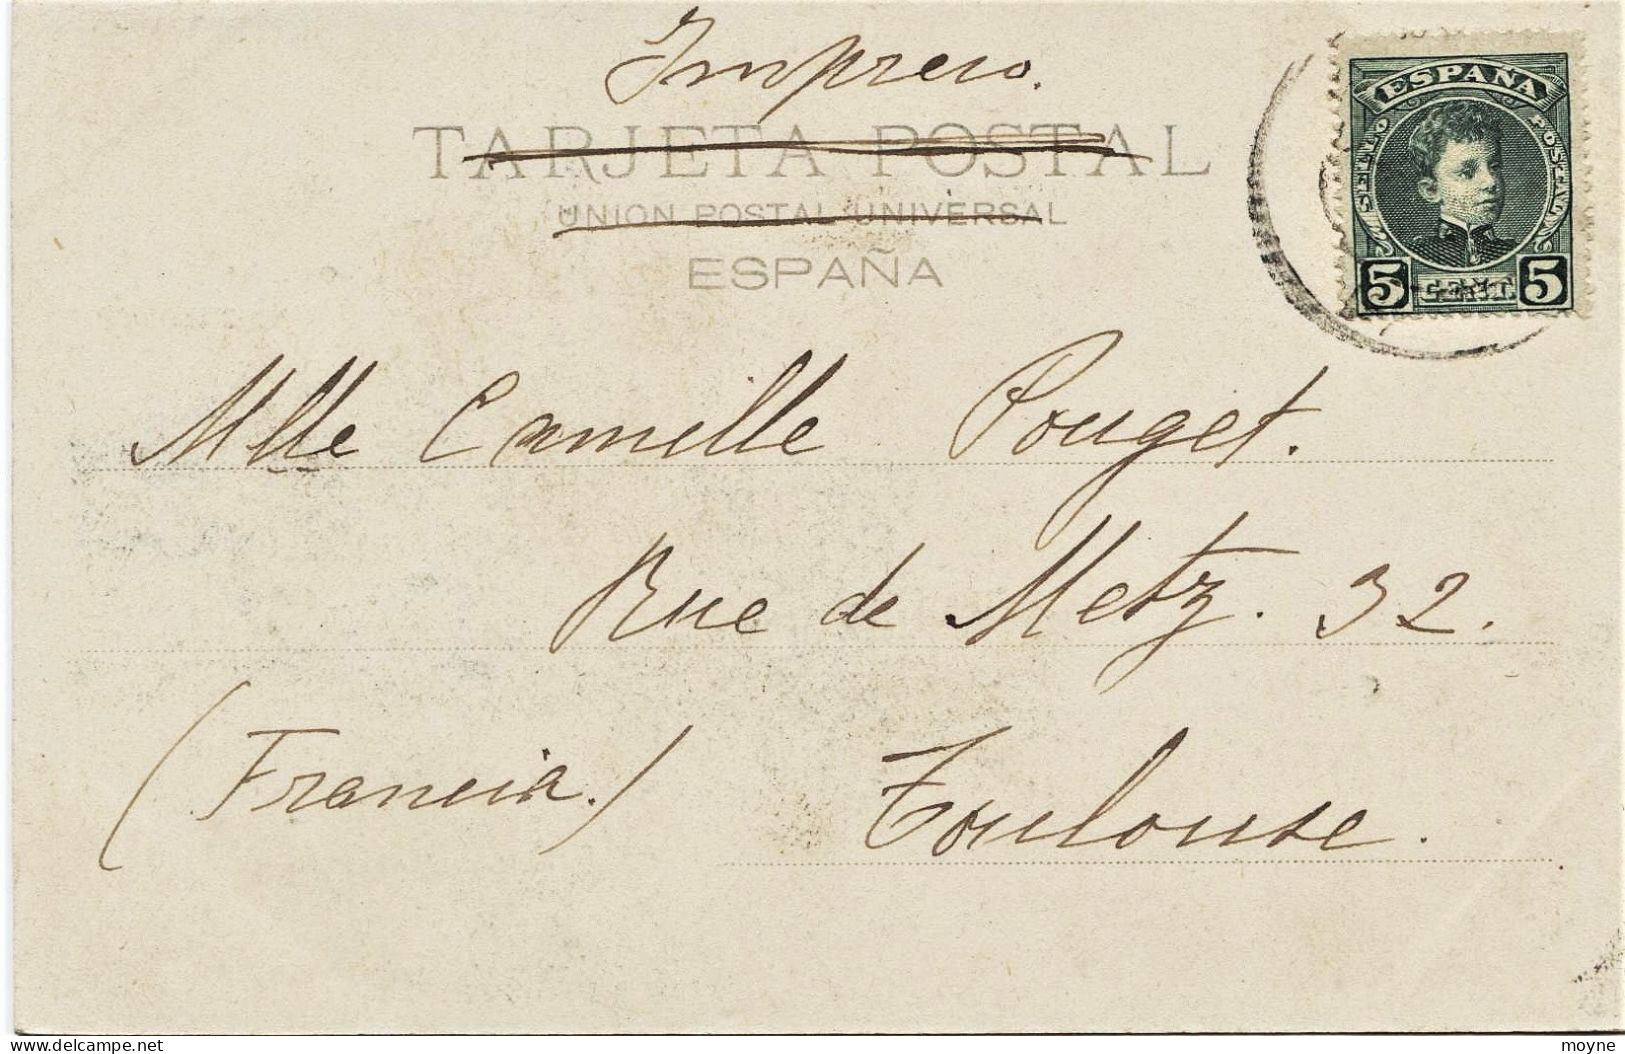 Impreso.
TARJETA POSTAL
UNION POSTAL UNIVERSAL
ESPAÑA
ESPAÑA
SELLO POSTAL
5 CENT. 5
Mlle Camille Pouget.
Rue de Metz. 32.
(Francia.) Toulouse.
delcampe.net
moyne